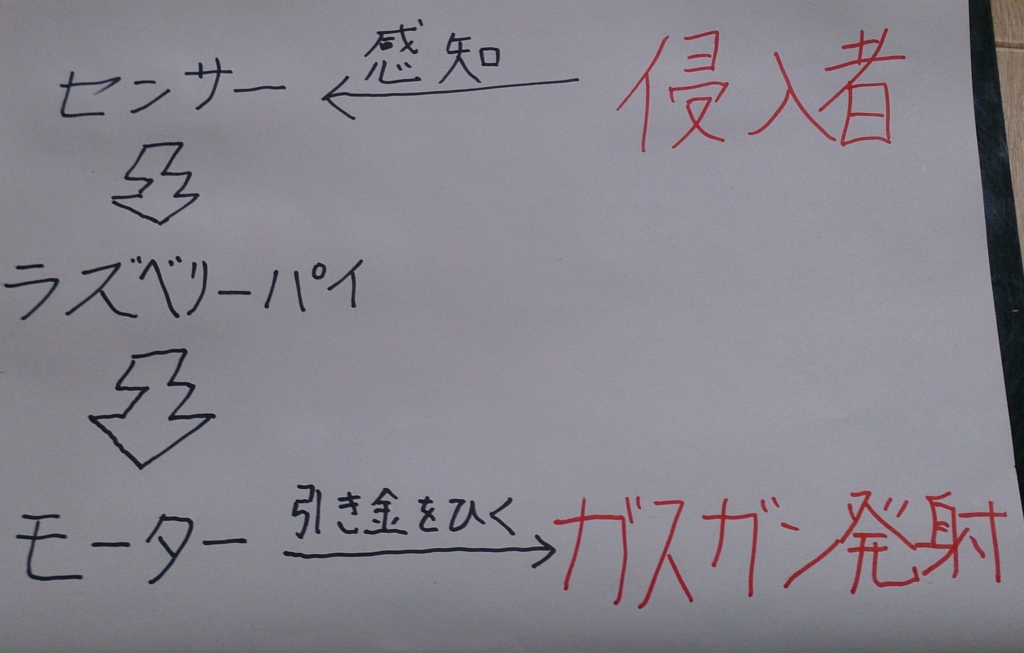 感知
侵入者
センサー
ラズベリーパイ
引き金をひく
モーター
ガスガン発射